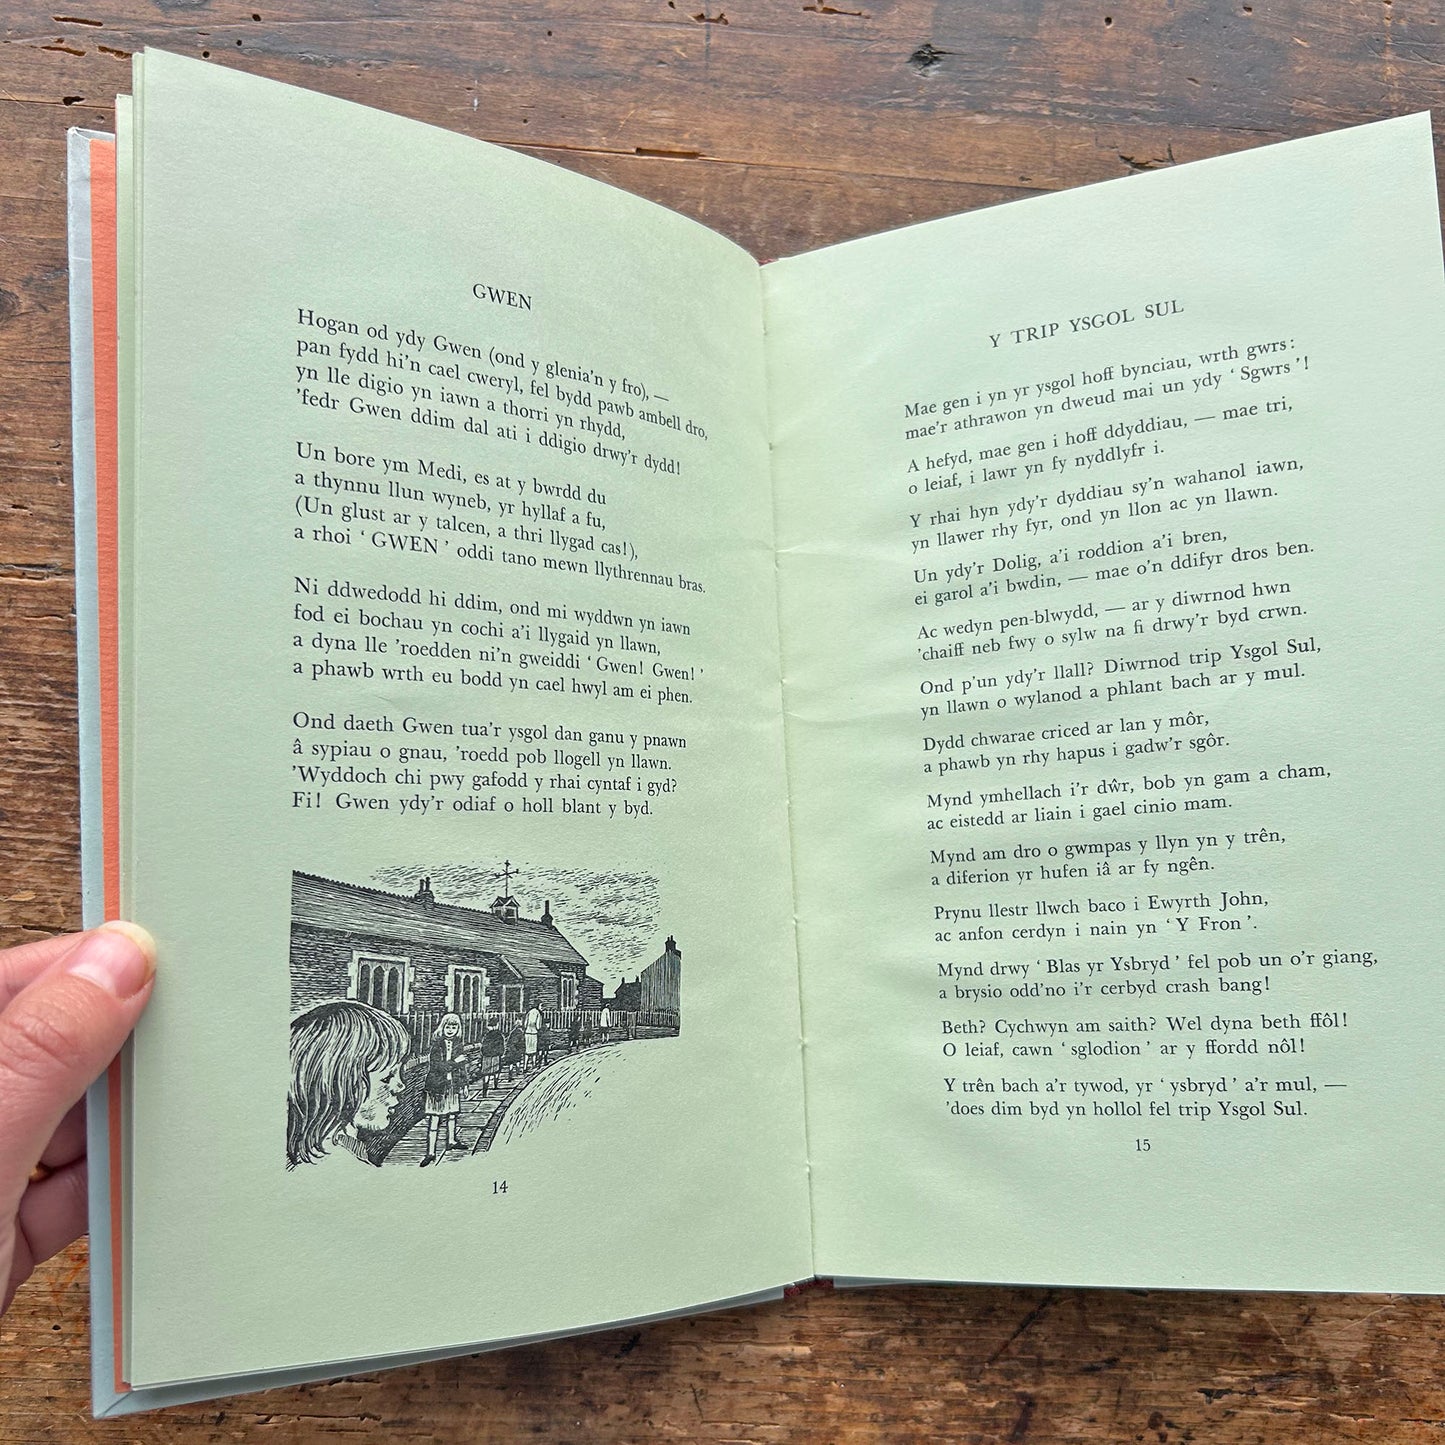 GWEN
Hogan od ydy Gwen (ond y glenia'n y fro), —
pan fydd hi'n cael cweryl, fel bydd pawb ambell dro,
yn lle digio yn iawn a thorri yn rhydd,
'fedr Gwen ddim dal ati i ddigio drwy'r dydd!
Un bore ym Medi, es at y bwrdd du
a thynnu llun wyneb, yr hyllaf a fu,
(Un glust ar y talcen, a thri llygad cas!),
a rhoi ‘ GWEN ’ oddi tano mewn llythrennau bras.
Ni ddwedodd hi ddim, ond mi wyddwn yn iawn
fod ei bochau yn cochi a'i llygaid yn llawn,
a dyna lle 'roedden ni'n gweiddi ‘ Gwen! Gwen! ’
a phawb wrth eu bodd yn cael hwyl am ei phen.
Ond daeth Gwen tua'r ysgol dan ganu y pnawn
â sypiau o gnau, 'roedd pob llogell yn llawn.
'Wyddoch chi pwy gafodd y rhai cyntaf i gyd?
Fi! Gwen ydy'r odiaf o holl blant y byd.
14
Y TRIP YSGOL SUL
Mae gen i yn yr ysgol hoff bynciau, wrth gwrs:
mae'r athrawon yn dweud mai un ydy ‘ Sgwrs ’!
A hefyd, mae gen i hoff ddyddiau, — mae tri,
o leiaf, i lawr yn fy nyddlyfr i.
Y rhai hyn ydy'r dyddiau sy'n wahanol iawn,
yn llawer rhy fyr, ond yn llon ac yn llawn.
Un ydy'r Dolig, a'i roddion a'i bren,
ei garol a'i bwdin, — mae o'n ddifyr dros ben.
Ac wedyn pen-blwydd, — ar y diwrnod hwn
'chaiff neb fwy o sylw na fi drwy'r byd crwn.
Ond p'un ydy'r llall? Diwrnod trip Ysgol Sul,
yn llawn o wylanod a phlant bach ar y mul.
Dydd chwarae criced ar lan y môr,
a phawb yn rhy hapus i gadw'r sgôr.
Mynd ymhellach i'r dŵr, bob yn gam a cham,
ac eistedd ar liain i gael cinio mam.
Mynd am dro o gwmpas y llyn yn y trên,
a diferion yr hufen iâ ar fy ngên.
Prynu llestr llwch baco i Ewyrth John,
ac anfon cerdyn i nain yn ‘ Y Fron ’.
Mynd drwy ‘ Blas yr Ysbryd ’ fel pob un o'r giang,
a brysio odd'no i'r cerbyd crash bang!
Beth? Cychwyn am saith? Wel dyna beth ffôl!
O leiaf, cawn ‘ sglodion ’ ar y ffordd nôl!
Y trên bach a'r tywod, yr ‘ ysbryd ’ a'r mul, —
'does dim byd yn hollol fel trip Ysgol Sul.
15